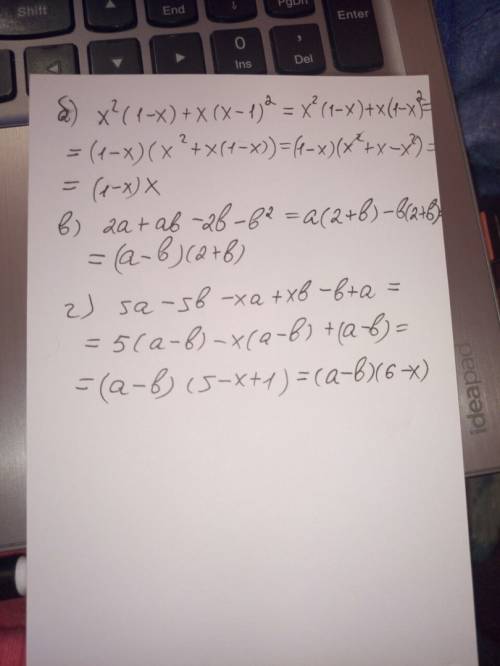 Shift
End
PgDn
Enter
0
Ins
,
Del
б) x²(1-x)+x(x-1)² = x²(1-x)+x(1-x)²=
= (1-x)(x²+x(1-x))=(1-x)(x²+x-x²)=
= (1-x)x
в) 2a+aв-2в-в² = a(2+в)-в(2+в)=
= (a-в)(2+в)
г) 5a-5в-xa+xв-в+a =
= 5(a-в)-x(a-в)+(a-в)=
=(a-в)(5-x+1)=(a-в)(6-x)
ideapad